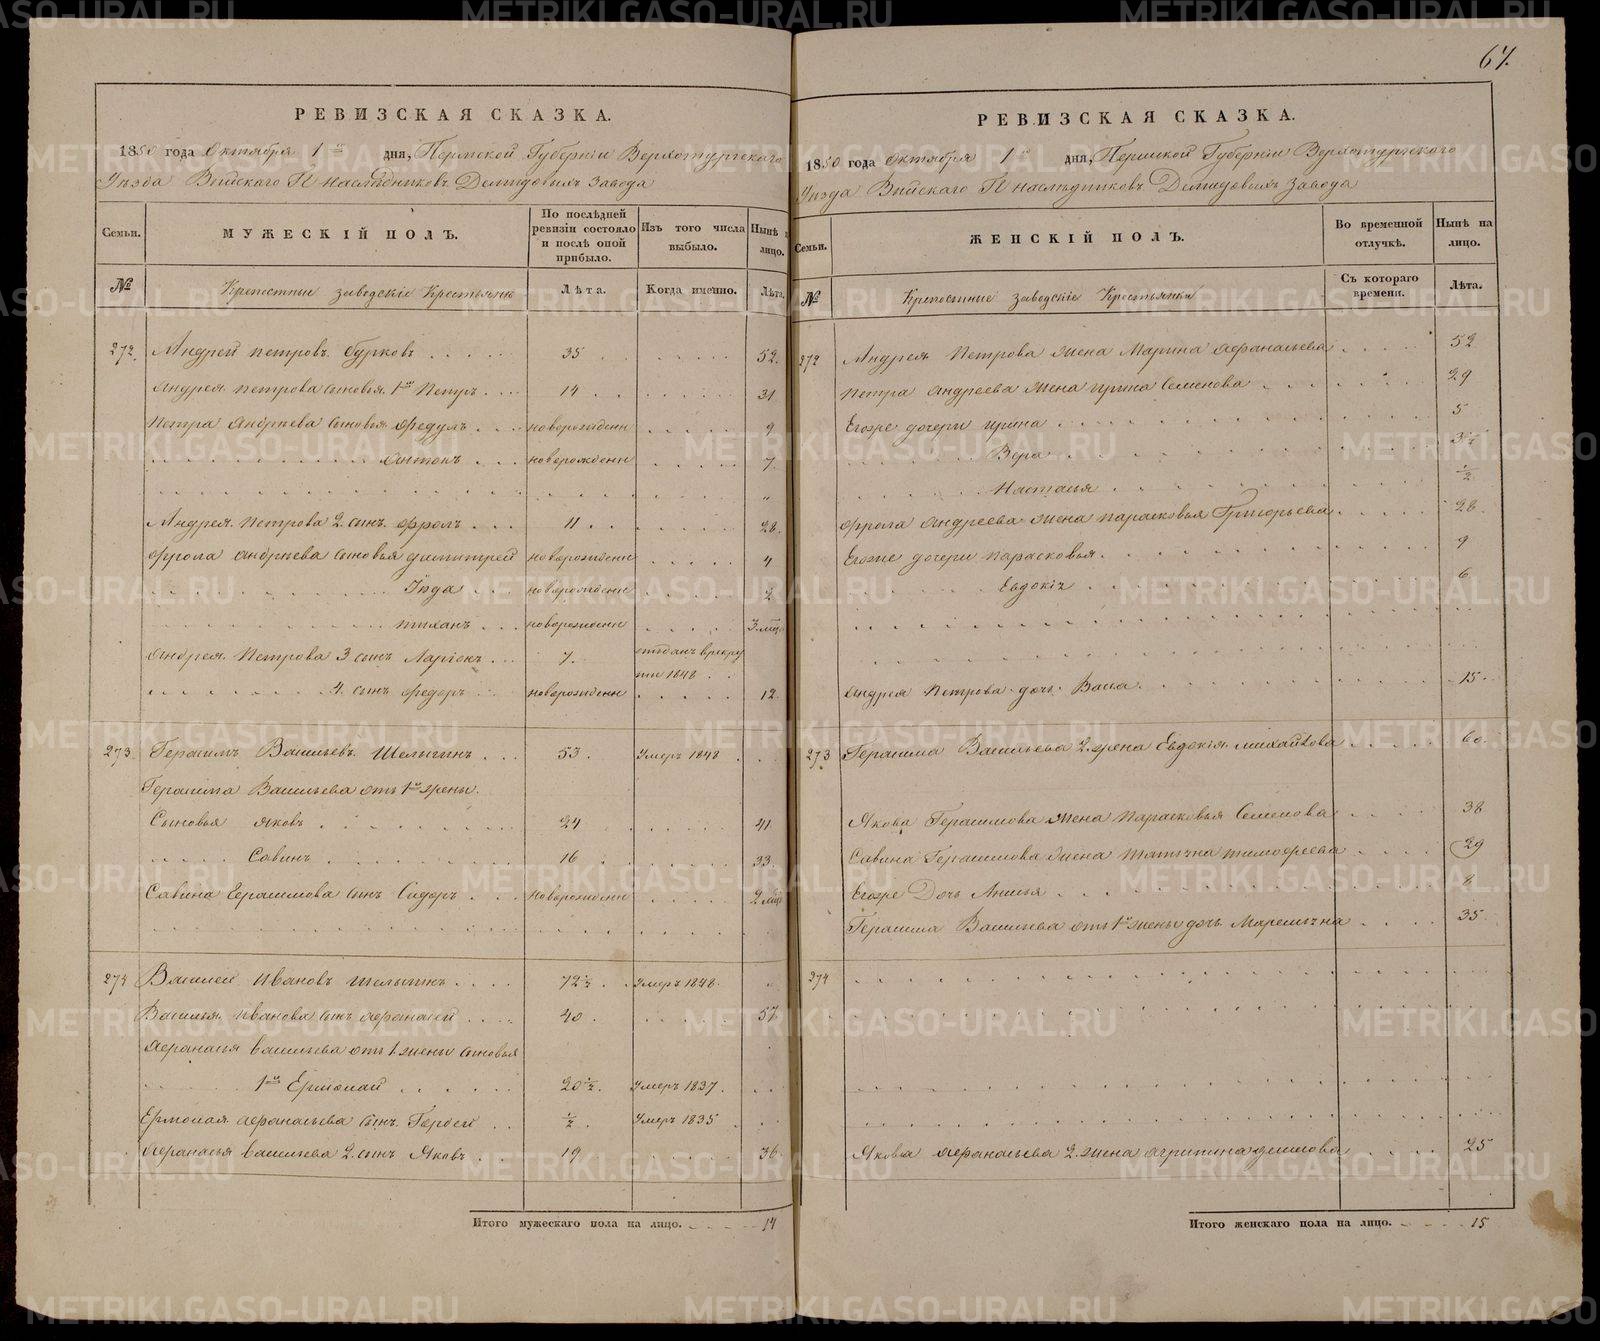 67.
РЕВИЗСКАЯ СКАЗКА.
1850 года Октября 1го дня, Пермской Губерніи Верхотурскаго
Уѣзда Выйскаго Гг. Наслѣдниковъ Демидовыхъ Завода
Семьи.
МУЖЕСКІЙ ПОЛЪ.
По послѣдней ревизіи состояло и послѣ оной прибыло.
Изъ того числа выбыло.
Нынѣ лицо.
№
Крепостные заводскіе Крестьяне
Лѣта.
Когда именно.
Лѣта.
272. Андрей Петровъ Бурковъ 35 52.
Андрея Петрова сыновья 1й Петръ 14 31
Петра Андреева сыновья Федулъ новорожденн 9
Антонъ новорожденн 7.
"
Андрея Петрова 2. сынъ Фролъ 11 28.
Фрола Андреева сыновья Димитрей новорожденн 4
Іуда новорожденн 2
Тиханъ новорожденн 3. мца
Андрея Петрова 3 сынъ Ларіонъ 7. отданъ в рекру
ты 1848
4. сынъ Федоръ новорожденн 12.
273. Герасимъ Васильевъ Шелыгинъ 53. Умеръ 1848
Герасима Васильева отъ 1й жены
Сыновья Яковъ 24 41
Савинъ 16 33.
Савина Герасимова сынъ Сидоръ новорожденн 2 мца
274 Василей Ивановъ Шелыгинъ 72 1/2. Умеръ 1848.
Василья Иванова сынъ Афанасей 40. 57.
Афанасья Васильева отъ 1 жены сыновья
1й Ермолай 20 1/2. Умеръ 1837.
Ермолая Афанасьева сынъ Гордей 1/2. Умеръ 1835
Афанасья Васильева 2. сынъ Яковъ 19 36.
Итого мужескаго пола на лицо. 17
РЕВИЗСКАЯ СКАЗКА.
1850 года Октября 1го дня, Пермской Губерніи Верхотурскаго
Уѣзда Выйскаго Гг. Наслѣдниковъ Демидовыхъ Завода
Семьи.
ЖЕНСКІЙ ПОЛЪ.
Во временной отлучкѣ.
Нынѣ на лицо.
№
Крепостные заводскіе Крестьянки
Съ котораго времени.
Лѣта.
272 Андрея Петрова жена Марина Афанасьева 52
Петра Андреева жена Ирина Семенова 29
Егоже дочери Ирина 5
Вера 3 1/2
Настасья 1/2
Фрола Андреева жена Парасковья Григорьева 28.
Егоже дочери Парасковья 9
Евдокія 6
Андрея Петрова дочь Васса 15
273 Герасима Васильева 2. жена Евдокія Михайлова 60.
Якова Герасимова жена Парасковья Семенова 38
Савина Герасимова жена Татьяна Тимофеева 29
Егоже Дочь Анисья 8
Герасима Васильева отъ 1й жены дочь Маремьяна 35
274
Якова Афанасьева 2. жена Агрипина 25
Итого женскаго пола на лицо. 15
METRIKI.GASO-URAL.RU